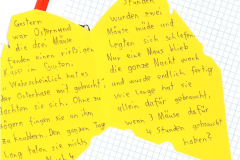 Gestern
war Osterwend
die drei Mäuse
fanden einen rießigen
Käse im Garten.
Wahrscheinlich hat es
der Osterhase mit gebracht,
dachten sie sich. Ohne zu
zögern fingen sie an ihn
zu knabbern. Den ganzen Tage
lang holen sie nichts
Stunden
wurden zwei
Mäuse müde und
legten sich schlafen.
Nur eine Maus blieb
die ganze Nacht wach
und wurde endlich fertig
wie lange hat sie
allein dafür gebraucht,
wenn 3 Mäuse dafür
4 Stunden gebraucht
haben?